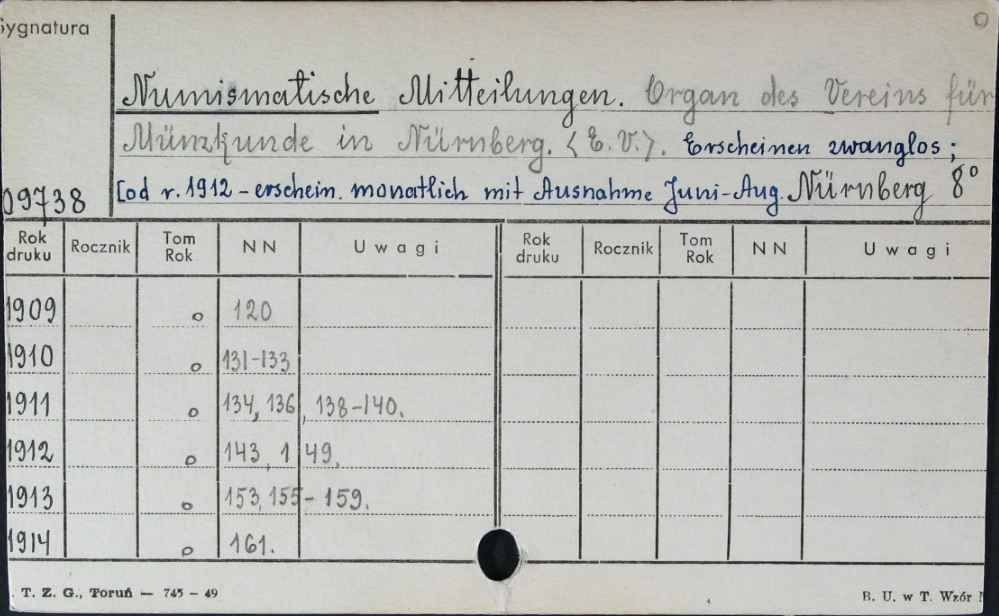 Sygnatura
Numismatische Mitteilungen. Organ des Vereins für
Münzkunde in Nürnberg. (E. V.). Erscheinen zwanglos;
09738 [od r. 1912 – erschein. monatlich mit Ausnahme Juni-Aug. Nürnberg 8°
Rok druku Rocznik Tom Rok NN Uwagi Rok druku Rocznik Tom Rok NN Uwagi
1909 o 120
1910 o 131-133
1911 o 134, 136, 138-140.
1912 o 143, 149.
1913 o 153, 155-159.
1914 o 161.
T. Z. G., Toruń — 745 – 49 B. U. w T. Wzór